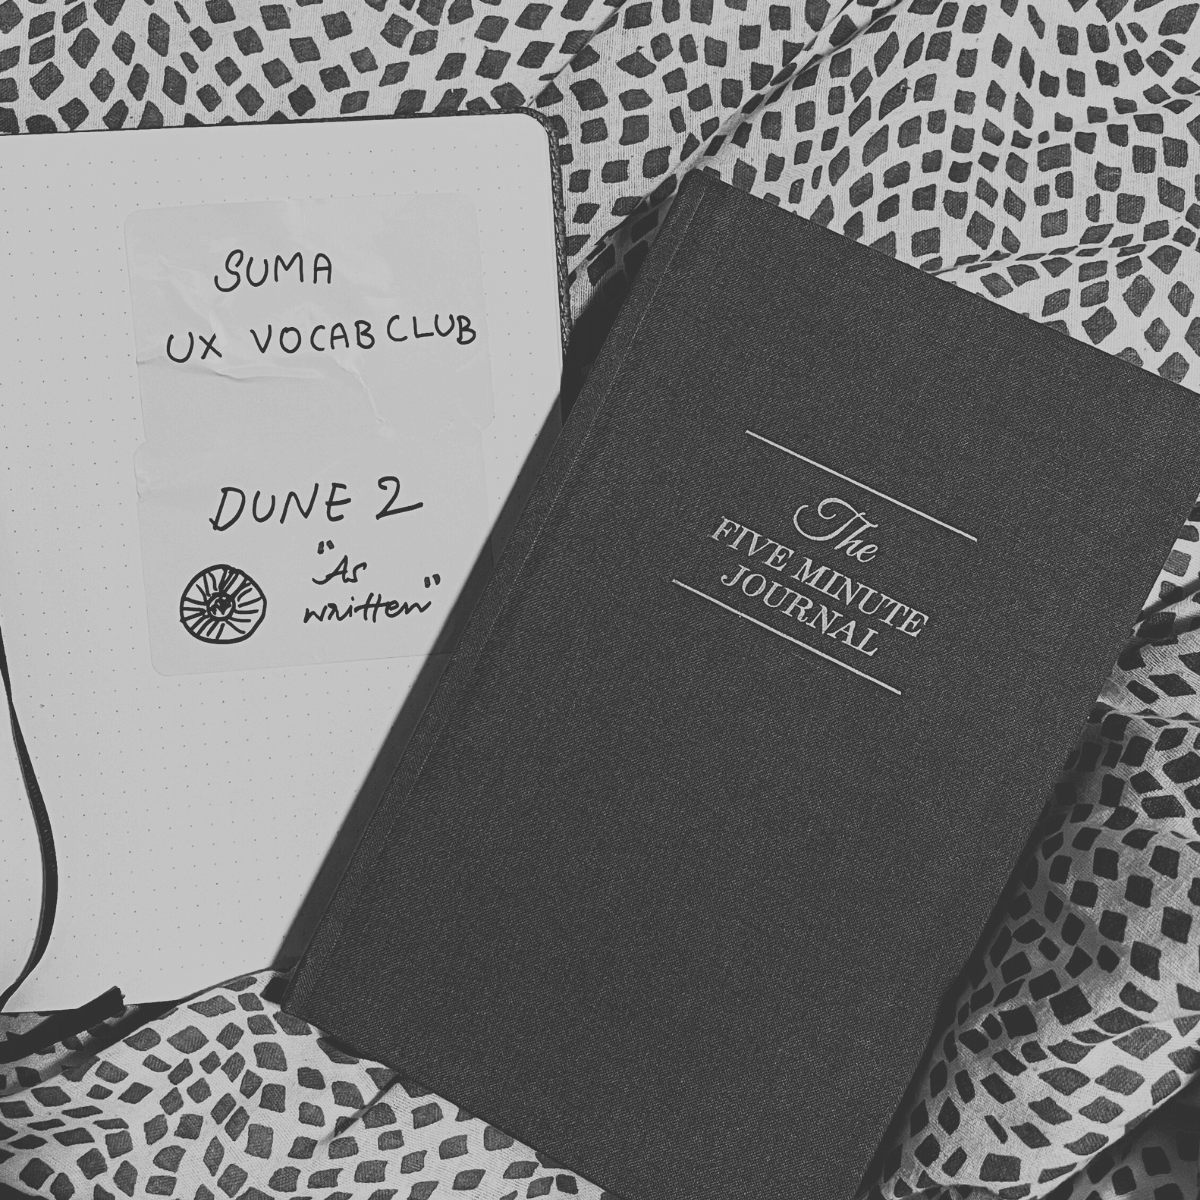 SUMA
UX VOCAB CLUB
DUNE 2
"As
written"
The
FIVE MINUTE
JOURNAL